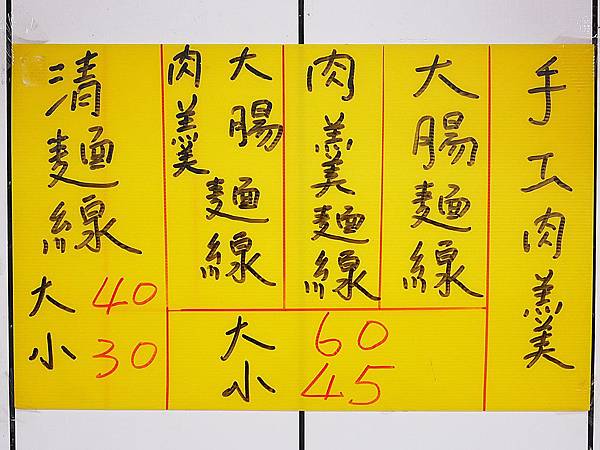 手工肉羹
大腸麵線
肉羹麵線
大腸麵線
肉羹
大 60
小 45
清麵線
大 40
小 30